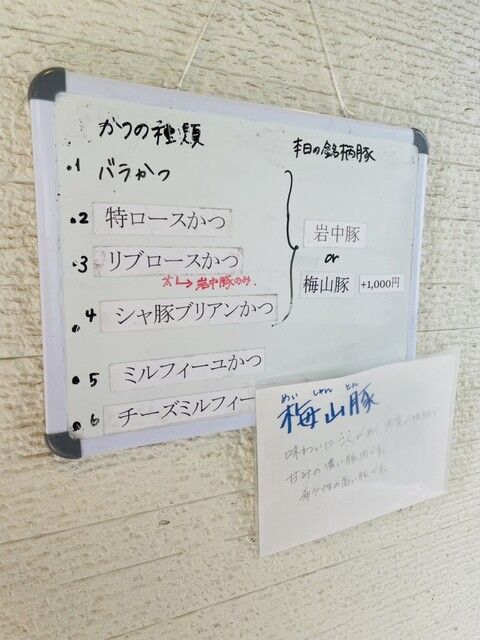 かつの種類
.1 バラかつ
.2 特ロースかつ
.3 リブロースかつ
岩中豚のみ
.4 シャ豚ブリアンかつ
.5 ミルフィーユかつ
.6 チーズミルフィー
本日の銘柄豚
岩中豚
or
梅山豚 +1,000円
めい しゃん とん
梅山豚
味わいに
甘みの濃い豚肉です。
希少性の高い豚です。